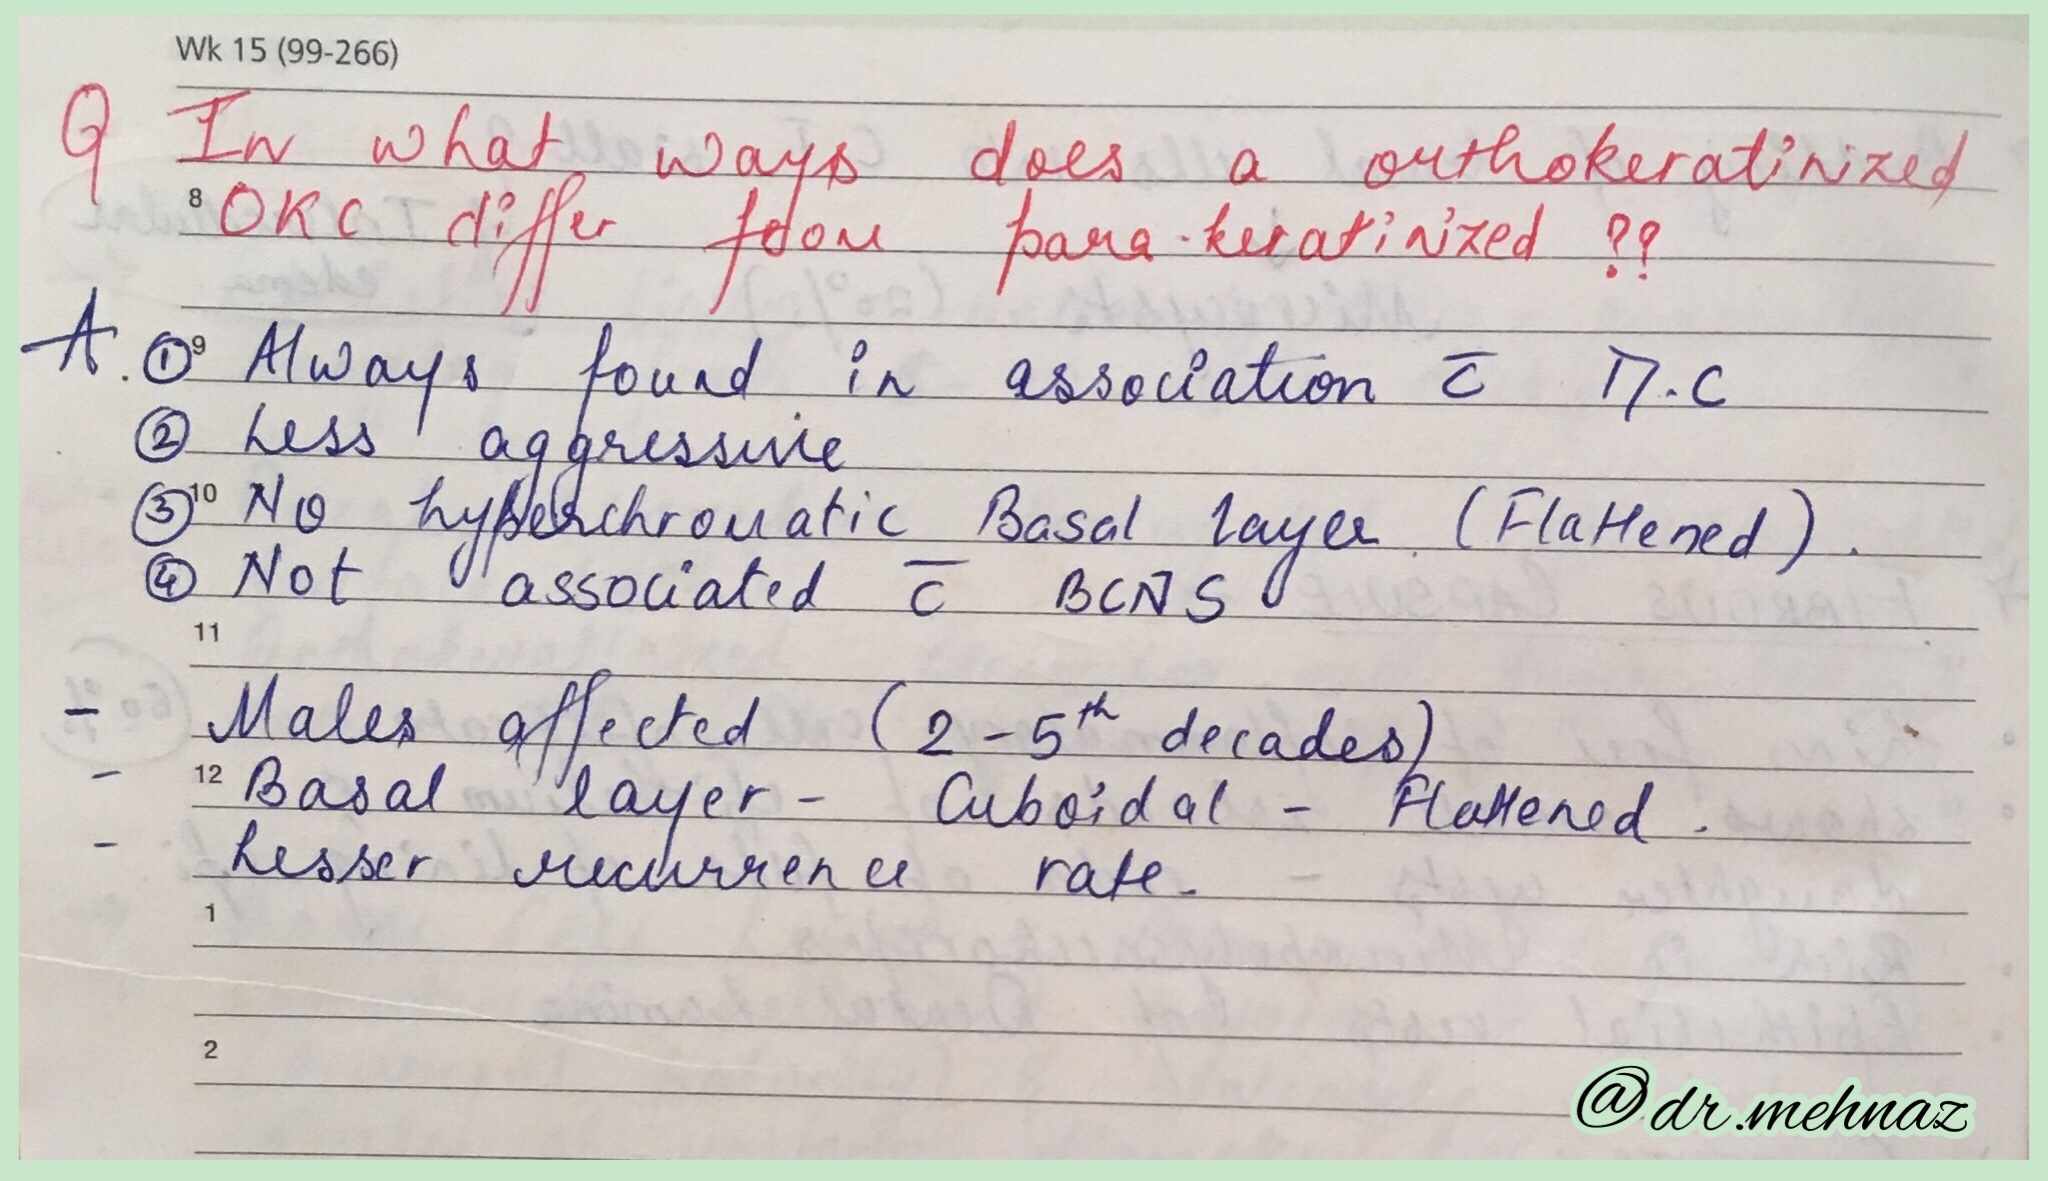 Wk 15 (99-266)
Q In what ways does a orthokeratinized
8 OKC differ from para-keratinized ??
A. ① 9 Always found in association c̄ D.C
② Less aggressive
③ 10 No hyperchromatic Basal layer (Flattened).
④ Not associated c̄ BCNS
11
- Males affected (2-5th decades)
- 12 Basal layer - Cuboidal - Flattened.
- Lesser recurrence rate.
1
2
@dr.mehnaz